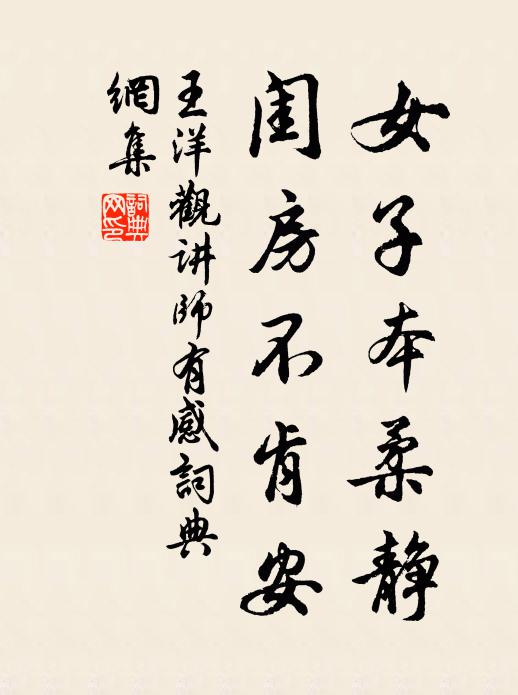 女子本柔静
闺房不肯安
王洋觀讲師有感詞典
網集
詞典
网印